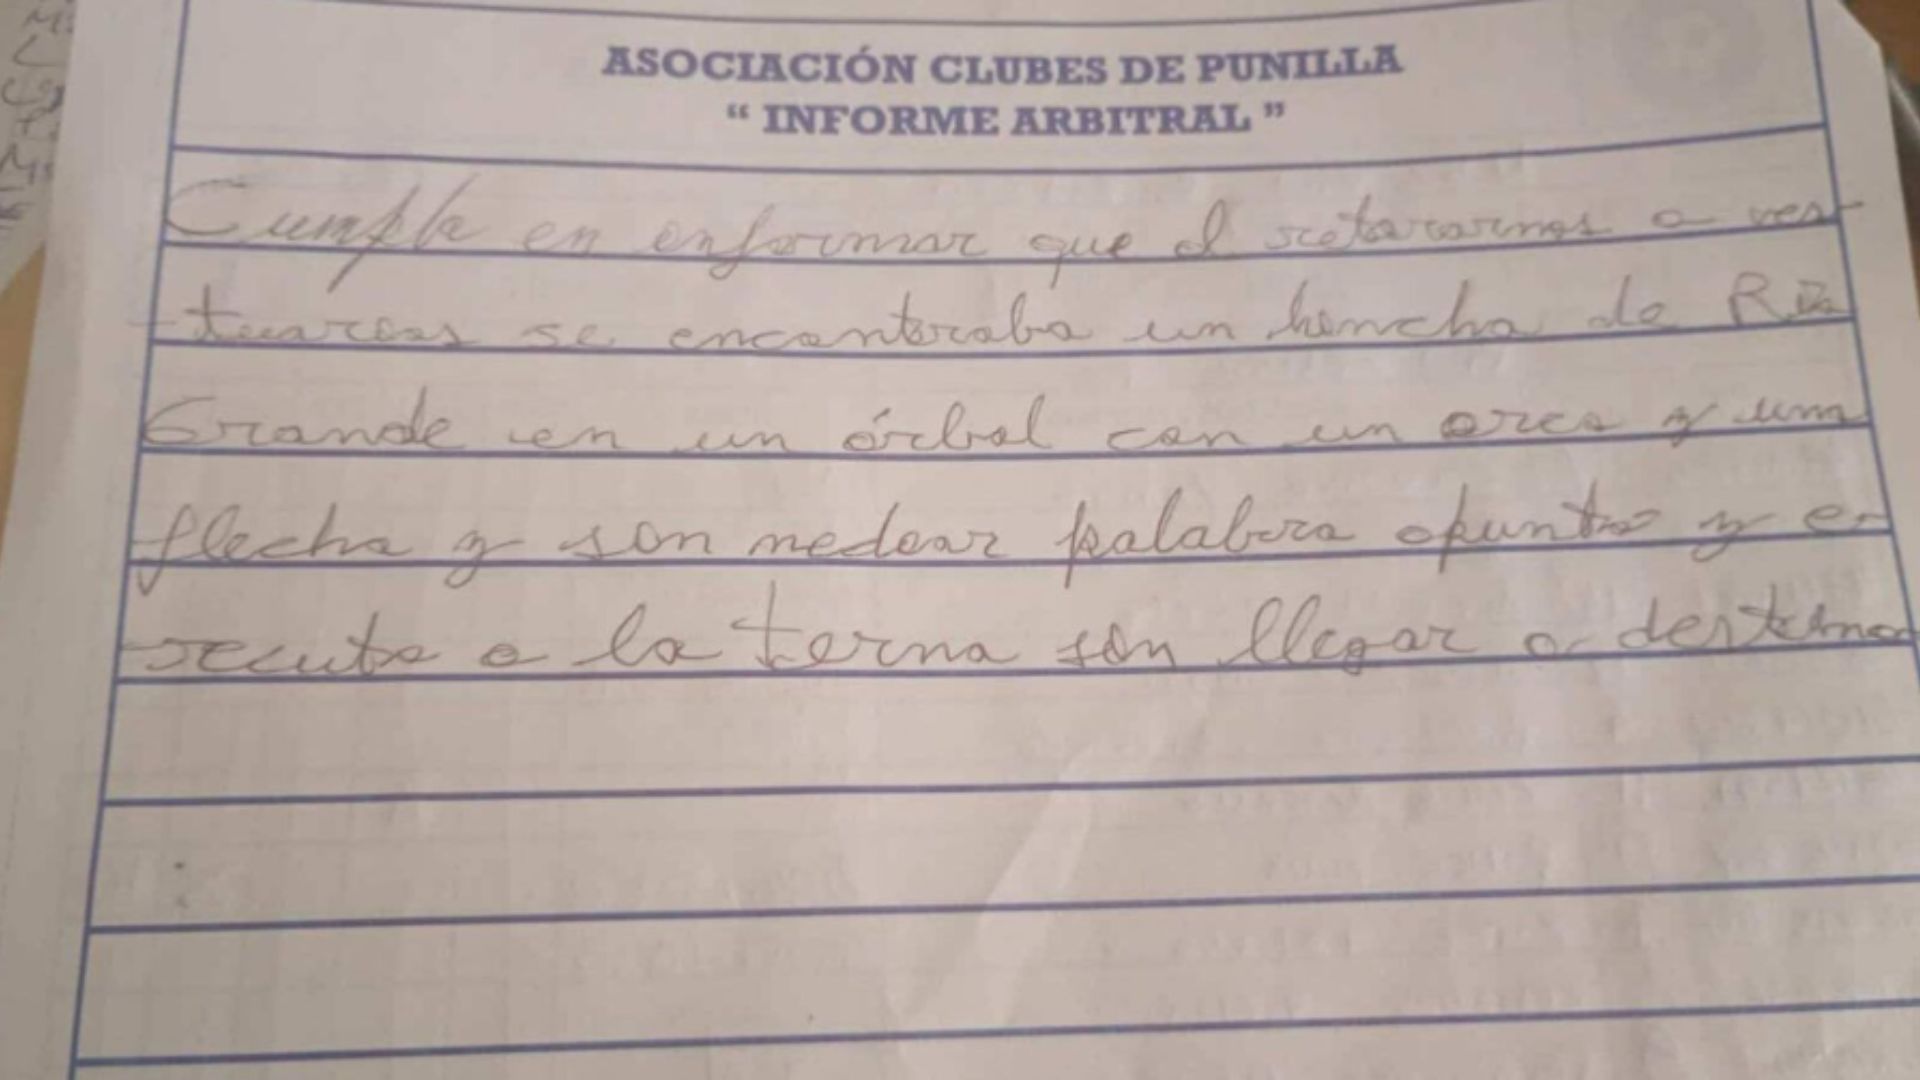 ASOCIACIÓN CLUBES DE PUNILLA
“ INFORME ARBITRAL ”
Cumplo en informar que al retirarnos a ves
tuarios se encontraba un hincha de Río
Grande en un árbol con un arco y una
flecha y sin mediar palabra apunto y e
jecuto a la terna sin llegar a destino